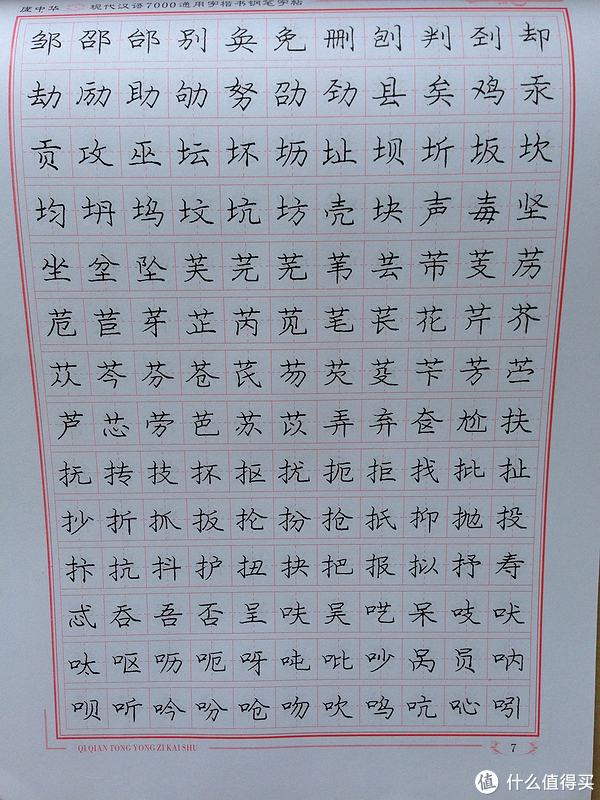 庞中华 现代汉语7000通用字楷书钢笔字帖
邹邵邰别奂免删刨判到却
劫励助劬努劭劲县矣鸡汞
贡攻巫坛坏坜址坝圻坂坎
均坍坞坟坑坊壳块声毒坚
坐坌坠芙芫芜苇芸芾芰苈
苊苣芽芷芮苋芼苌花芹芥
苁芩芬苍芪芴芡芟苄芳苎
芦芯劳芭苏苡弄弃奁尬扶
抚抟技抔抠扰扼拒找批扯
抄折抓扳抡扮抢抵抑抛投
抃抗抖护扭抉把报拟抒寿
忒吞吾否呈呋吴呓呆吱吠
呔呕呖呃呀吨吡吵呙员呐
呗听吟吩呛吻吹呜吭吣吲
QI QIAN TONG YONG ZI KAI SHU
7
值 什么值得买